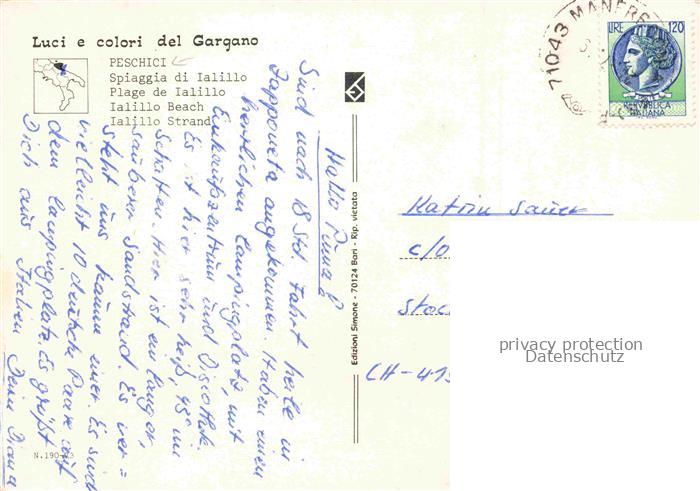 Luci e colori del Gargano
PESCHICI
Spiaggia di Ialillo
Plage de Ialillo
Ialillo Beach
Ialillo Strand
N. 190-
Edizioni Simone - 70124 Bari - Rip. vietata
71043 MANFRE
LIRE 120
REPVBBLICA
ITALIANA
Hallo
Sind nach 18 Std. Fahrt heile in
Zapponeta angekommen. Haben einen
herrlichen Campingplatz, mit
Einkaufszentrum und Disiothek.
Es ist hier sehr heiß, 45° im
Schatten. Hier ist ein langer,
sauberer Sandstrand. Es ver=
steht uns kaum einer. Es sind
vielleicht 10 deutsche Paare auf
dem Campingplatz. Es grüßt
Dich aus Italien Deine Diana
Katrin Sauer
c/o
Stoc
CH-41
privacy protection
Datenschutz